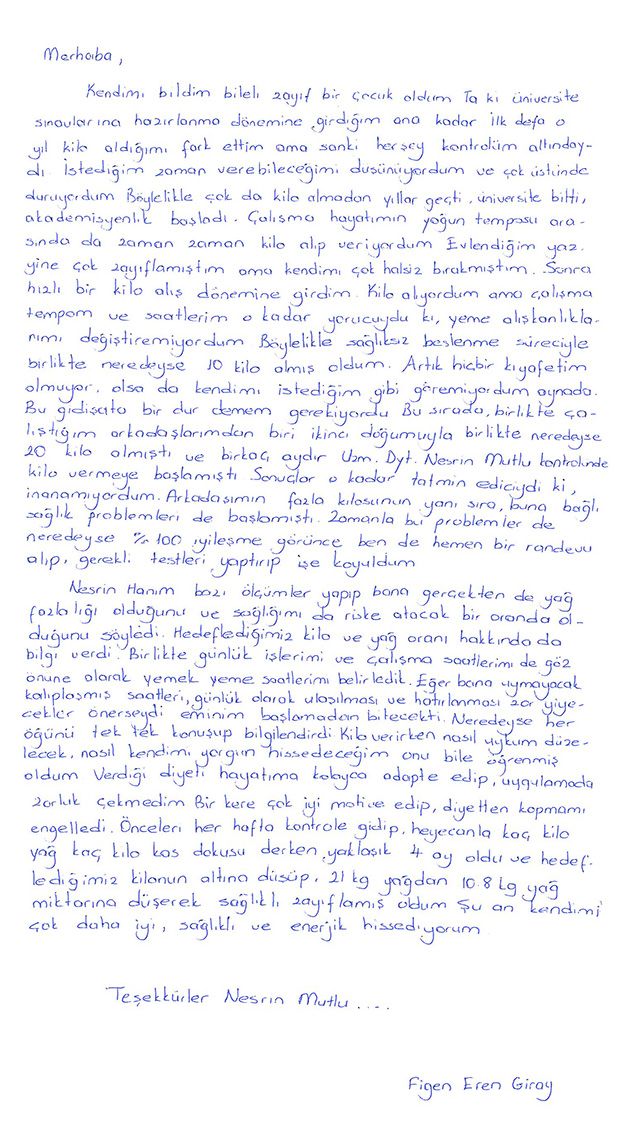 Merhaba,
Kendimi bildim bileli zayıf bir çocuk oldum Ta ki üniversite
sınavlarına hazırlanma dönemine girdiğim ana kadar İlk defa o
yıl kilo aldığımı fark ettim ama sanki herşey kontrolüm altınday-
dı İstediğim zaman verebileceğimi düşünüyordum ve çok üstünde
duruyordum Böylelikle çok da kilo almadan yıllar geçti, üniversite bitti,
akademisyenlik başladı. Çalışma hayatımın yoğun temposu ara-
sında da zaman zaman kilo alıp veriyordum Evlendiğim yaz
yine çok zayıflamıştım ama kendimi çok halsiz bırakmıştım. Sonra
hızlı bir kilo alış dönemine girdim. Kilo alıyordum ama çalışma
tempom ve saatlerim o kadar yorucuydu ki, yeme alışkanlıkla-
rımı değiştiremiyordum Böylelikle sağlıksız beslenme süreciyle
birlikte neredeyse 10 kilo almış oldum. Artık hiçbir kıyafetim
olmuyor, olsa da kendimi istediğim gibi göremiyordum aynada.
Bu gidişata bir dur demem gerekiyordu Bu sırada, birlikte ça-
lıştığım arkadaşlarımdan biri ikinci doğumuyla birlikte neredeyse
20 kilo almıştı ve birkaç aydır Uzm. Dyt. Nesrin Mutlu kontrolünde
kilo vermeye başlamıştı Sonuçlar o kadar tatmin ediciydi ki,
inanamıyordum. Arkadaşımın fazla kilosunun yanı sıra, buna bağlı
sağlık problemleri de başlamıştı. Zamanla bu problemler de
neredeyse %100 iyileşme görünce ben de hemen bir randevu
alıp, gerekli testleri yaptırıp işe koyuldum
Nesrin Hanım bazı ölçümler yapıp bana gerçekten de yağ
fazlalığı olduğunu ve sağlığımı da riske atacak bir oranda ol-
duğunu söyledi. Hedeflediğimiz kilo ve yağ oranı hakkında da
bilgi verdi. Birlikte günlük işlerimi ve çalışma saatlerimi de göz
önüne olarak yemek yeme saatlerimi belirledik. Eğer bana uymayacak
kalıplaşmış saatleri, günlük olarak ulaşılması ve hatırlanması zor yiye-
cekler önerseydi eminim başlamadan bitecekti. Neredeyse her
öğünü tek tek konuşup bilgilendirdi Kilo verirken nasıl uykum düze-
lecek, nasıl kendimi yorgun hissedeceğim onu bile öğrenmiş
oldum Verdiği diyeti hayatıma kolayca adapte edip, uygulamada
zorluk çekmedim Bir kere çok iyi motive edip, diyetten kopmamı
engelledi. Önceleri her hafta kontrole gidip, heyecanla kaç kilo
yağ kaç kilo kas dokusu derken, yaklaşık 4 ay oldu ve hedef-
lediğimiz kilonun altına düşüp, 21 kg yağdan 10.8 kg yağ
miktarına düşerek sağlıklı zayıflamış oldum Şu an kendimi
çok daha iyi, sağlıklı ve enerjik hissediyorum
Teşekkürler Nesrin Mutlu ....
Figen Eren Giray